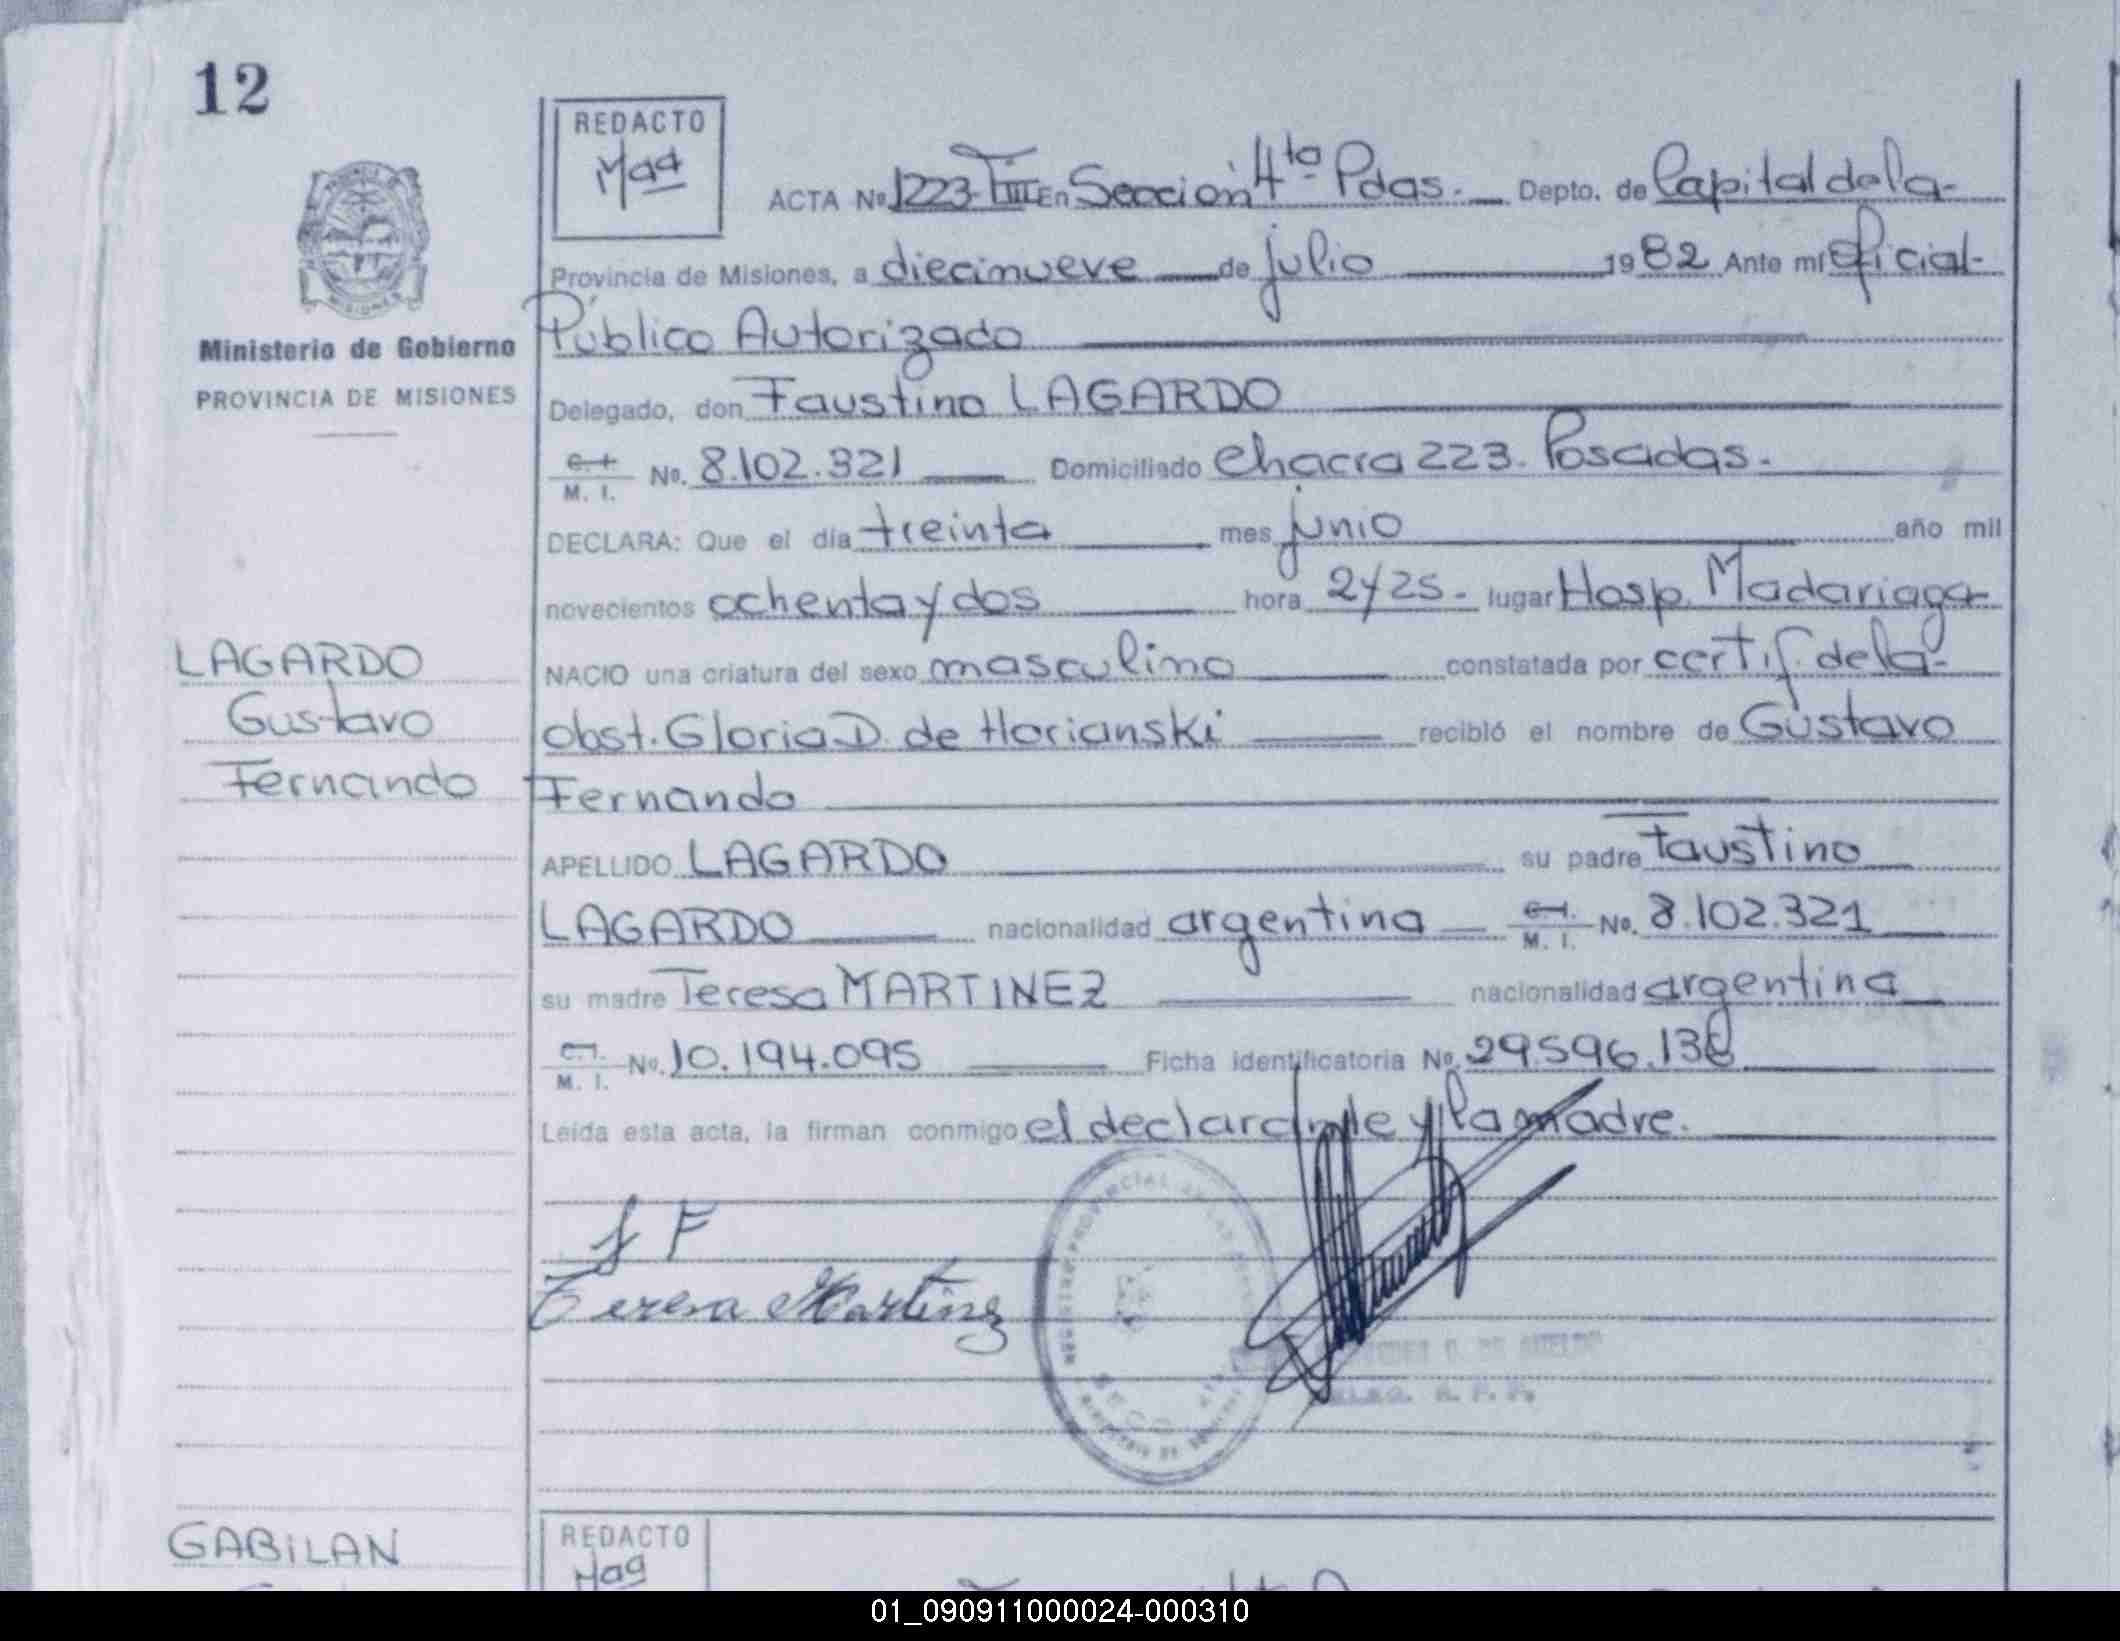 12
REDACTO
Mag
ACTA Nº 1223-TIII En Sección 4ta Pdas. Depto. de Capital de la-
Provincia de Misiones, a diecinueve de julio 1982 Ante mí Oficial-
Ministerio de Gobierno
PROVINCIA DE MISIONES
Público Autorizado
Delegado, don Faustino LAGARDO
C. I. M. I. No. 8.102.321 Domiciliado Chacra 223. Posadas.
DECLARA: Que el día treinta mes junio año mil
novecientos ochenta y dos hora 2y25- lugar Hosp. Madariaga
LAGARDO
Gustavo
Fernando
NACIO una criatura del sexo masculino constatada por certif. de la-
obst. Gloria D. de Horianski recibió el nombre de Gustavo
Fernando
APELLIDO LAGARDO su padre Faustino
LAGARDO nacionalidad argentina C. I. M. I. No. 8.102.321
su madre Teresa MARTINEZ nacionalidad argentina
C. I. M. I. No. 10.194.095 Ficha identificatoria No. 29.596.138
Leída esta acta, la firman conmigo el declarante y la madre.
L F
Teresa Martinez
GABiLAN
REDACTO
Mag
01_090911000024-000310